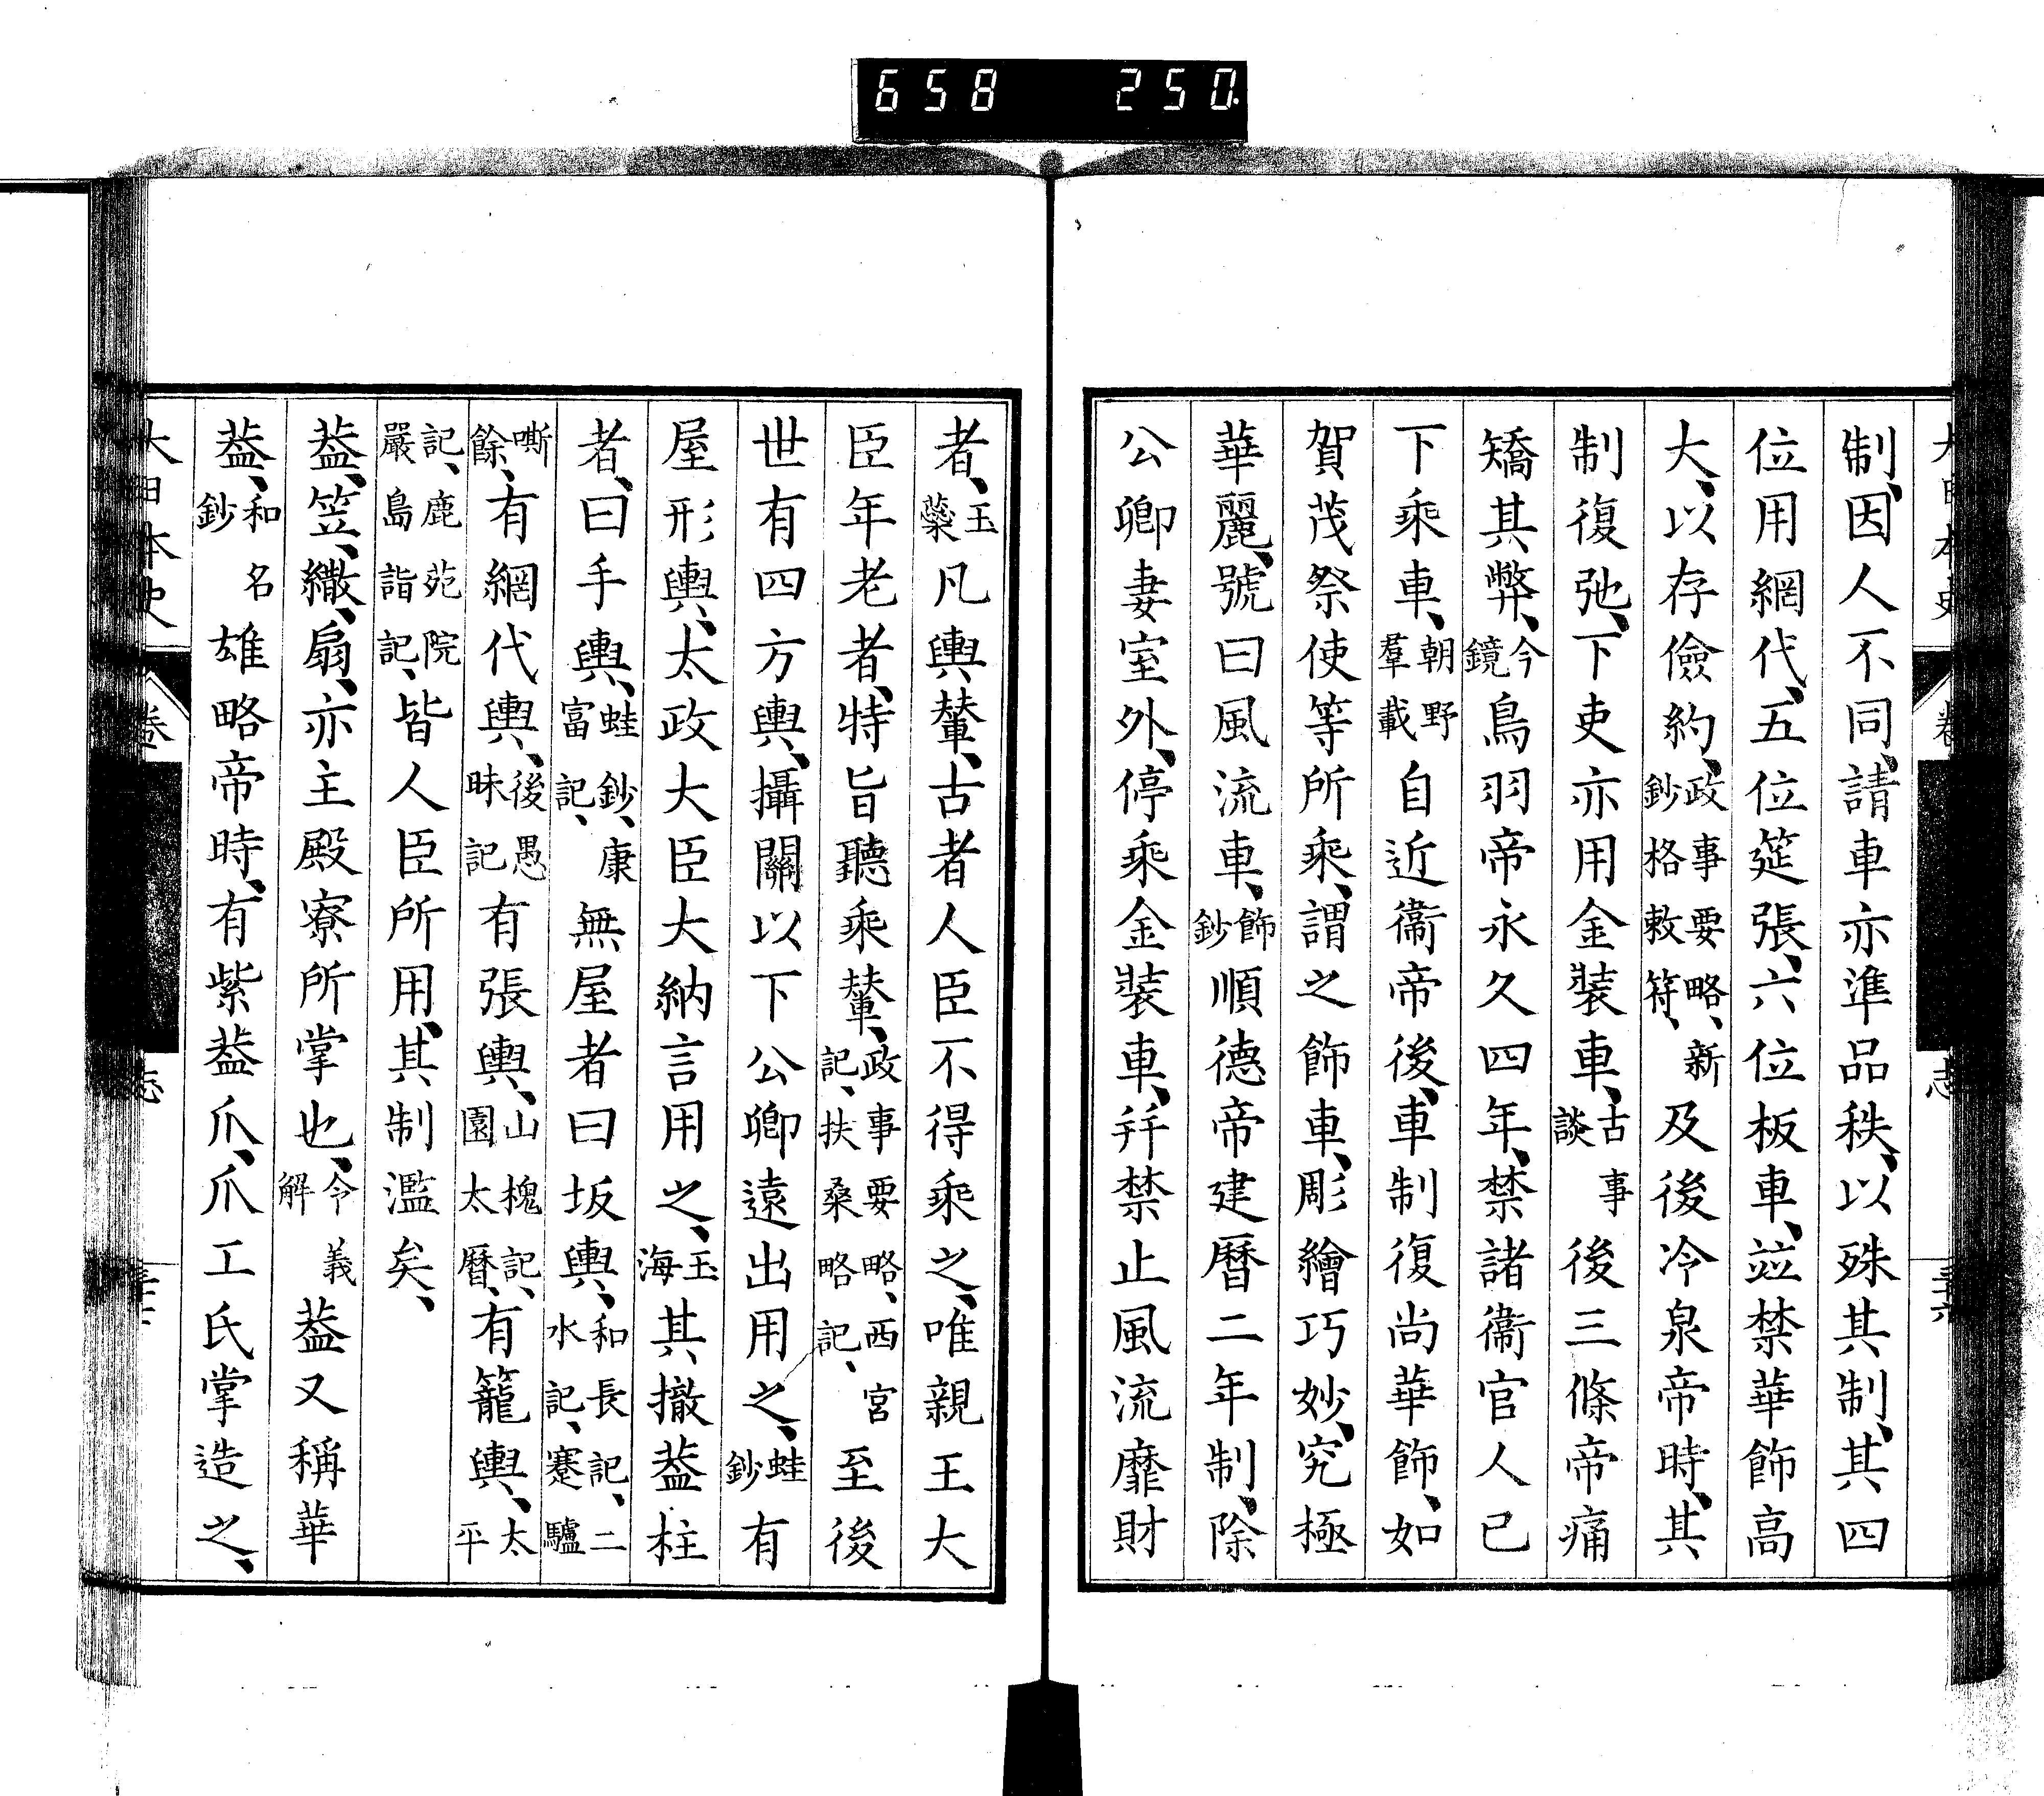 658 250
制、因人不同、請車亦準品秩、以殊其制、其四
位用網代、五位筵張、六位板車、竝禁華飾高
大、以存儉約、政事要略、新鈔格敕符、及後冷泉帝時、其
制復弛、下吏亦用金装車、古事談後三條帝痛
矯其弊、今鏡鳥羽帝永久四年、禁諸衞官人已
下乘車、朝野羣載自近衞帝後、車制復尚華飾、如
賀茂祭使等所乘、謂之飾車、彫繪巧妙、究極
華麗、號曰風流車、飾鈔順德帝建曆二年制、除
公卿妻室外、停乘金装車、幷禁止風流靡財
者、玉蘂凡輿輦、古者人臣不得乘之、唯親王大
臣年老者、特旨聽乘輦、政事要略、西宮記、扶桑略記、至後
世有四方輿、攝關以下公卿遠出用之、蛙鈔有
屋形輿、太政大臣大納言用之、玉海其撤葢柱
者、曰手輿、蛙鈔、康富記、無屋者曰坂輿、和長記、二水記、蹇驢
嘶餘、有網代輿、後愚昧記有張輿、山槐記、園太曆、有籠輿、太平
記、鹿苑院嚴島詣記、皆人臣所用、其制濫矣、
葢、笠、繖、扇、亦主殿寮所掌也、令義解葢又稱華
葢、和名鈔雄略帝時、有紫葢爪、爪工氏掌造之、
大日本史 志